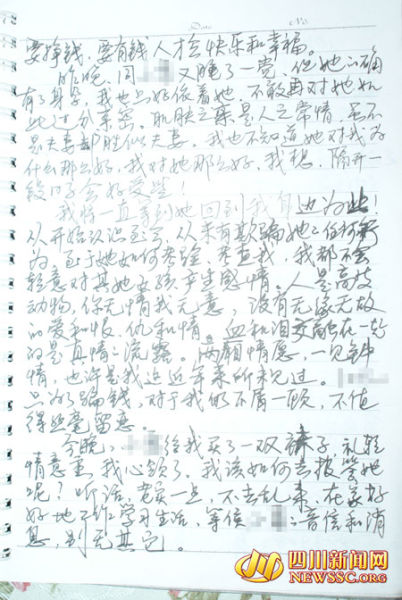 要挣钱、要有钱人才会快乐和幸福。
昨晚、同 又睡了一觉，但她的确
有了身孕，我也只好依着她，不能再对她如
此过分亲密。肌肤之亲是人之常情，虽不
是夫妻却胜似夫妻，我也不知道她对我为
什么那么好，我对她那么好，我想，隔开一
段日子会好受些！
我将一直等到她回到我身边为止！
从开始认识至今，从未有欺骗她之任何行
为，至于她如何考验、考查我，我都不会
轻意对其她女孩产生感情。人是高级
动物，你无情我无意，没有无缘无故
的爱和恨、仇和情。血和泪交融在一起
的是真情之流露。两厢情愿，一见钟
情，也许是我这近年来所未见过。
只为了骗钱，对于我的不屑一顾，不值
得丝毫留意。
今晚， 给我买了一双袜子，礼轻
情意重，我心领了，我该如何去报答她
呢？听话，老实一点，不去乱来，在家好
好地工作学习生活，等候 之音信和消
息，别无其它。
四川新闻网
NEWSSC.ORG